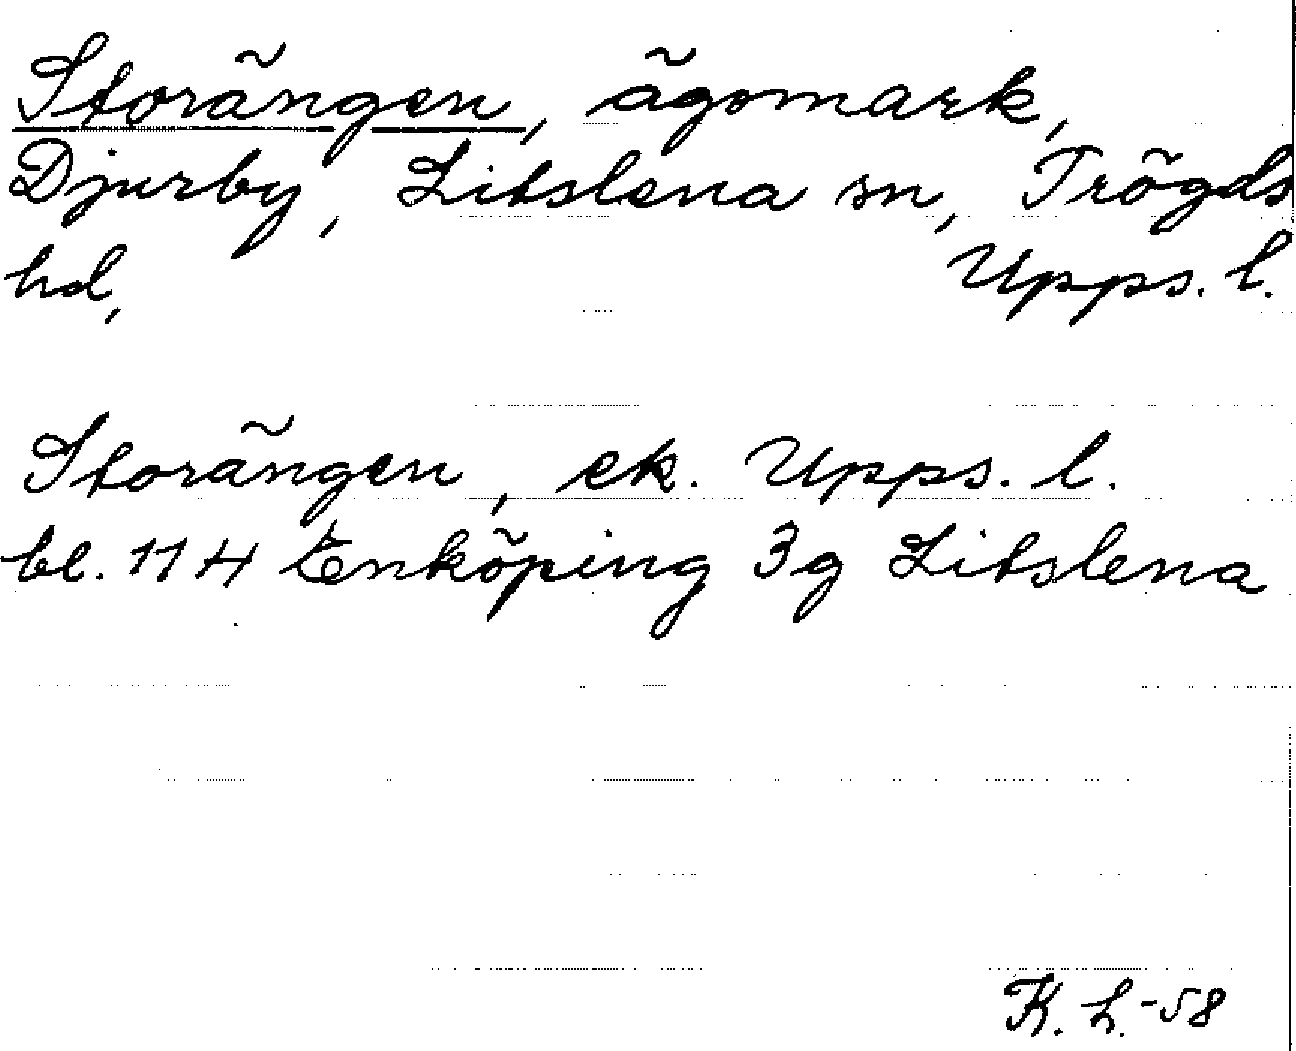 Storängen, ägomark,
Djurby, Litslena sn, Trögds
hd, Upps. l.
Storängen, ek. Upps. l.
bl. 114 Enköping 3g Litslena
K. L.-58